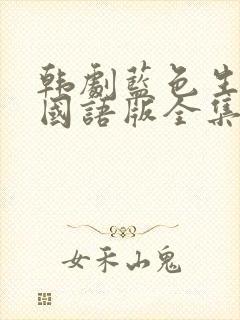 韩劇藍色生
國語版全集
女禾山鬼